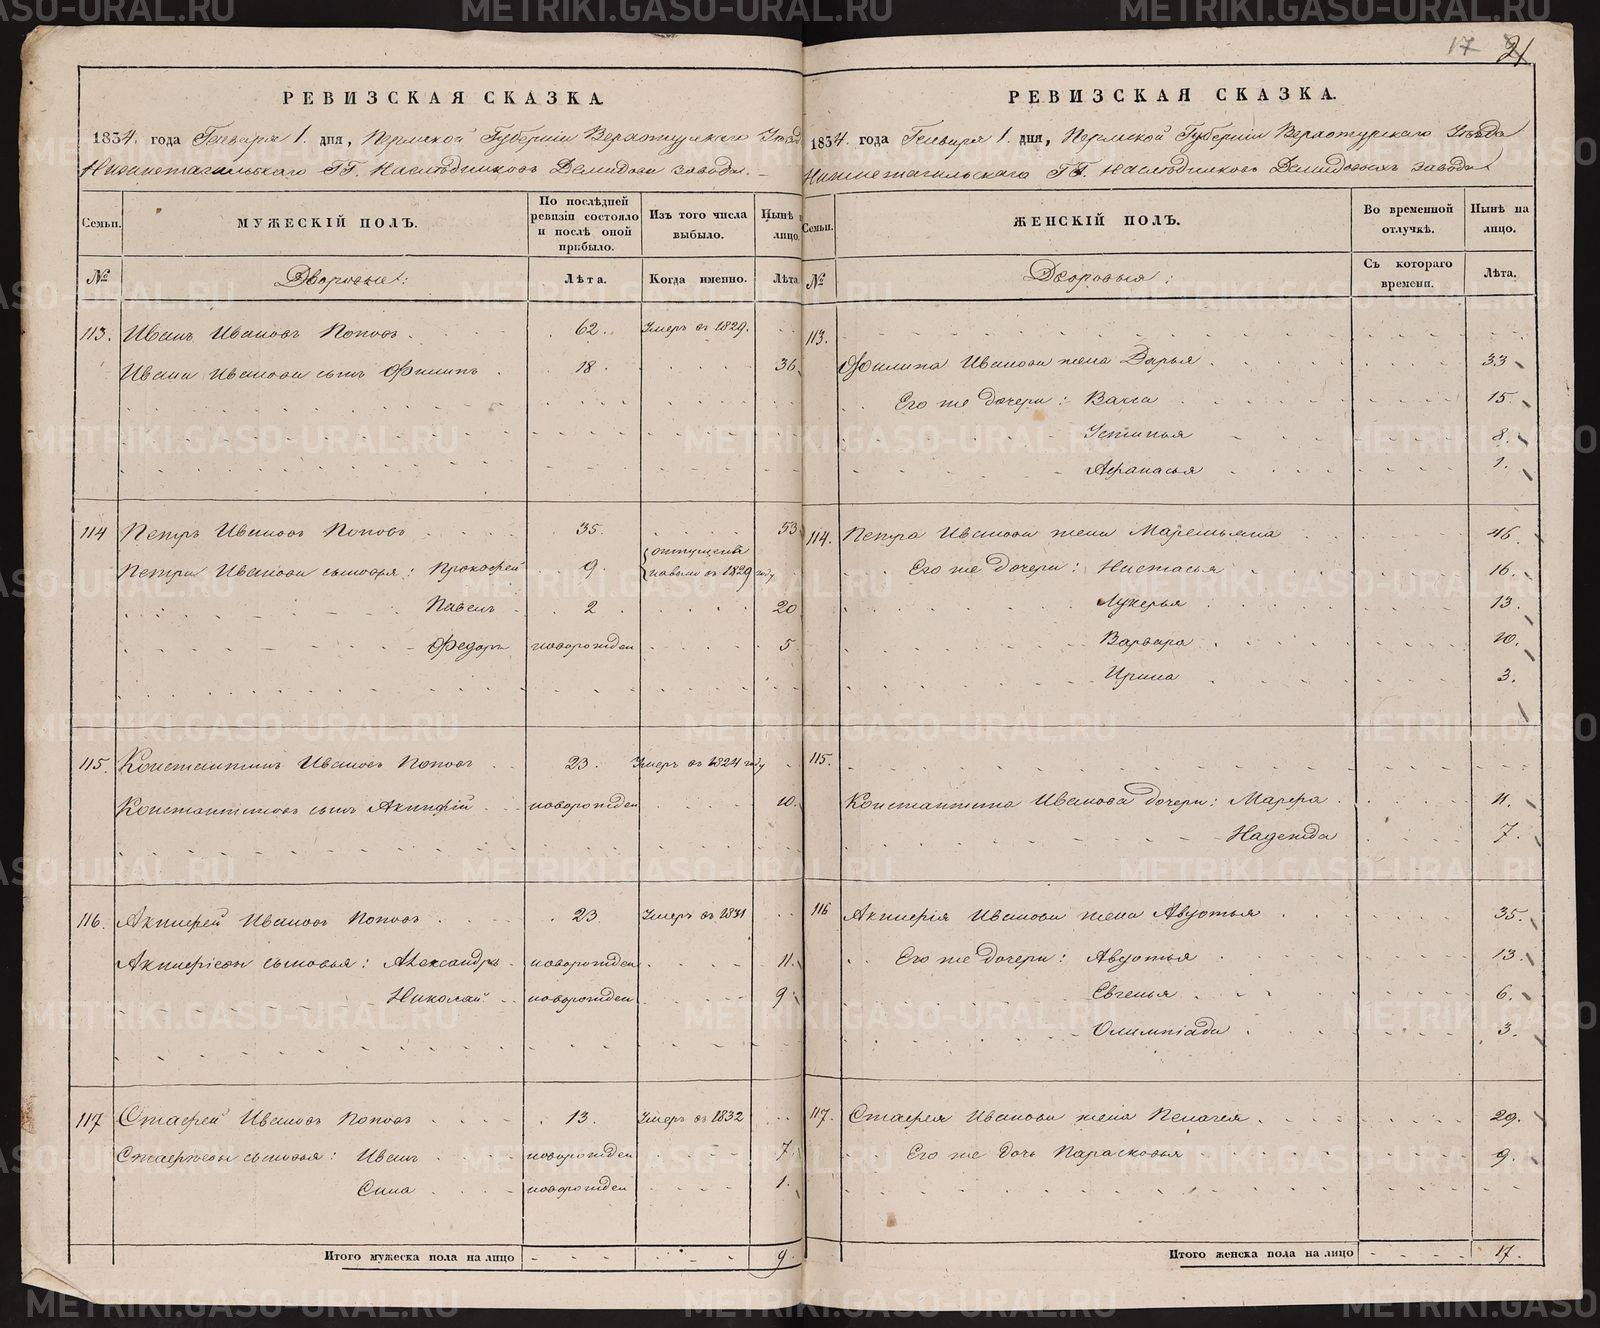 17 21
РЕВИЗСКАЯ СКАЗКА.
1834. года Генваря 1. дня, Пермской Губернiи Верхотурскаго Уезда
Нижнетагильскаго ГГ. Наслѣдниковъ Демидовыхъ завода.
Семьи.
МУЖЕСКIЙ ПОЛЪ.
По послѣдней ревизiи состояло и послѣ оной прибыло.
Изъ того числа выбыло.
Нынѣ на лицо.
№
Дворовые:
Лѣта.
Когда именно.
Лѣта
113. Иванъ Ивановъ Поповъ 62. Умеръ въ 1829.
Ивана Иванова сынъ Филипъ 18. 36
114 Петръ Ивановъ Поповъ 35. 53
Петра Иванова сыновья: Прокофей 9. отпущенъ на волю въ 1829 году
Павелъ 2 20
Федоръ новорожден 5
115. Константинъ Ивановъ Поповъ 23. Умеръ въ 1824 году
Константиновъ сынъ Акинфiй новорожден 10.
116. Акинфей Ивановъ Поповъ 23 Умеръ въ 1831
Акинфiевы сыновья: Александръ новорожден 11.
Николай новорожден 9
117 Стафей Ивановъ Поповъ 13. Умеръ въ 1832
Стафѣевы сыновья: Иванъ новорожден 7.
Сила новорожден 1.
Итого мужеска пола на лицо 9.
РЕВИЗСКАЯ СКАЗКА.
1834. года Генваря 1. дня, Пермской Губернiи Верхотурскаго Уѣзда
Нижнетагильскаго ГГ. Наслѣдниковъ Демидовыхъ завода
Семьи.
ЖЕНСКIЙ ПОЛЪ.
Во временной отлучкѣ.
Нынѣ на лицо.
№
Дворовыя:
Съ котораго времени.
Лѣта.
113.
Филипа Иванова жена Дарья 33
Его же дочери: Васса 15.
Устинья 8.
Афанасья 1.
114. Петра Иванова жена Маремьяна 46.
Его же дочери: Настасья 16.
Лукерья 13.
Варвара 10.
Ирина 3.
115.
Константина Иванова дочери: Марфа 11.
Надежда 7.
116 Акинфiя Иванова жена Авдотья 35.
Его же дочери: Авдотья 13.
Евгенья 6.
Олимпiада 3.
117. Стафея Иванова жена Пелагея 29.
Его же дочь Парасковья 9.
Итого женска пола на лицо 17.
METRIKI.GASO-URAL.RU